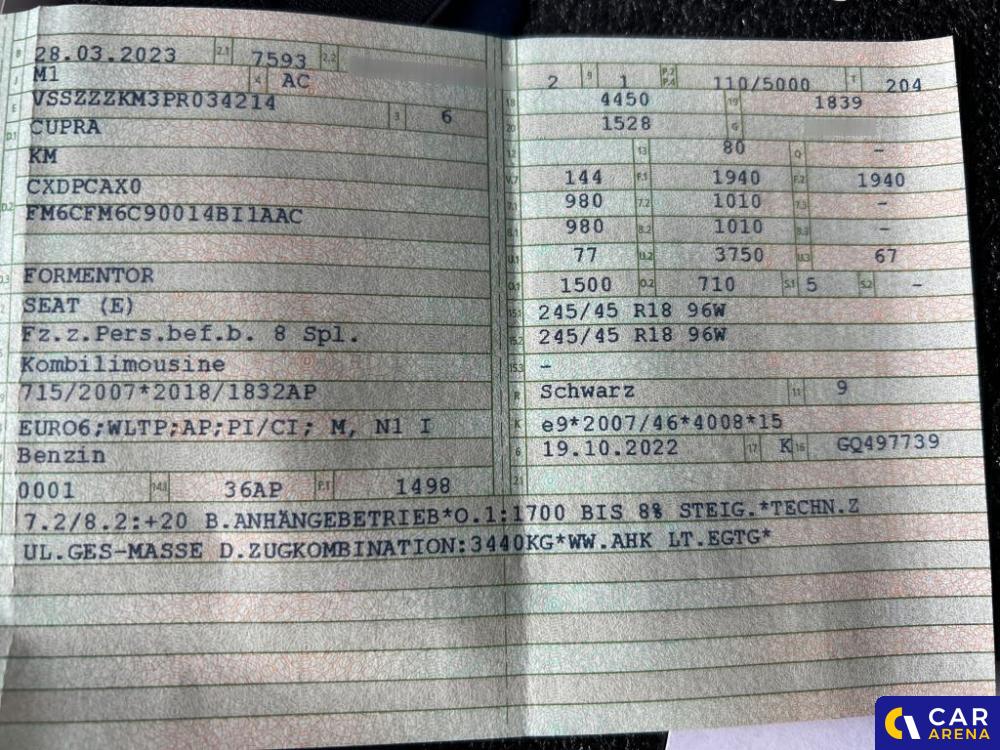 B 28.03.2023 2.1 7593 2.2
J M1 4 AC
E VSSZZZKM3PR034214 3 6
D.1 CUPRA
KM
D.2 CXDPCAX0
FM6CFM6C90014BI1AAC
FORMENTOR
SEAT (E)
Fz.z.Pers.bef.b. 8 Spl.
Kombilimousine
715/2007*2018/1832AP
EURO6;WLTP;AP;PI/CI; M, N1 I
Benzin
0001 14.1 36AP P.1 1498
2 9 1 P.2 P.4 110/5000 T 204
18 4450 19 1839
20 1528 G
12 13 80 Q –
V.7 144 F.1 1940 F.2 1940
7.1 980 7.2 1010 7.3 –
8.1 980 8.2 1010 8.3 –
U.1 77 U.2 3750 U.3 67
O.1 1500 O.2 710 S.1 5 S.2 –
15.1 245/45 R18 96W
15.2 245/45 R18 96W
15.3 –
R Schwarz 11 9
K e9*2007/46*4008*15
6 19.10.2022 17 K 16 GQ497739
21
7.2/8.2:+20 B.ANHÄNGEBETRIEB*O.1:1700 BIS 8% STEIG.*TECHN.Z
UL.GES-MASSE D.ZUGKOMBINATION:3440KG*WW.AHK LT.EGTG*
CAR
ARENA